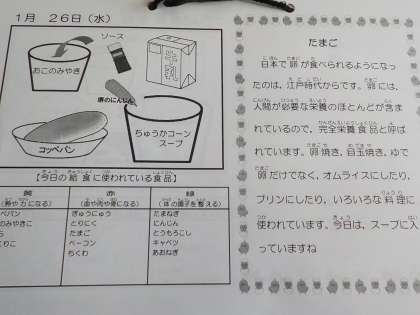 1月 26日(水)
ソース
おこのみやき
牛乳
春のにんじん
ちゅうかコーン
スープ
コッペパン
【今日の給食に使われている食品】
黄 赤 緑
(熱や力になる) (血や肉や骨になる) (体の調子を整える)
ぎゅうにゅう たまねぎ
とりにく にんじん
たまご とうもろこし
ベーコン キャベツ
ちくわ あおねぎ
たまご
日本で卵が食べられるようになっ
たのは、江戸時代からです。卵には、
人間が必要な栄養のほとんどが含ま
れているので、完全栄養食品と呼ば
れています。卵焼き、目玉焼き、ゆで
卵だけでなく、オムライスにしたり、
プリンにしたり、いろいろな料理に
使われています。今日は、スープに入
っていますね